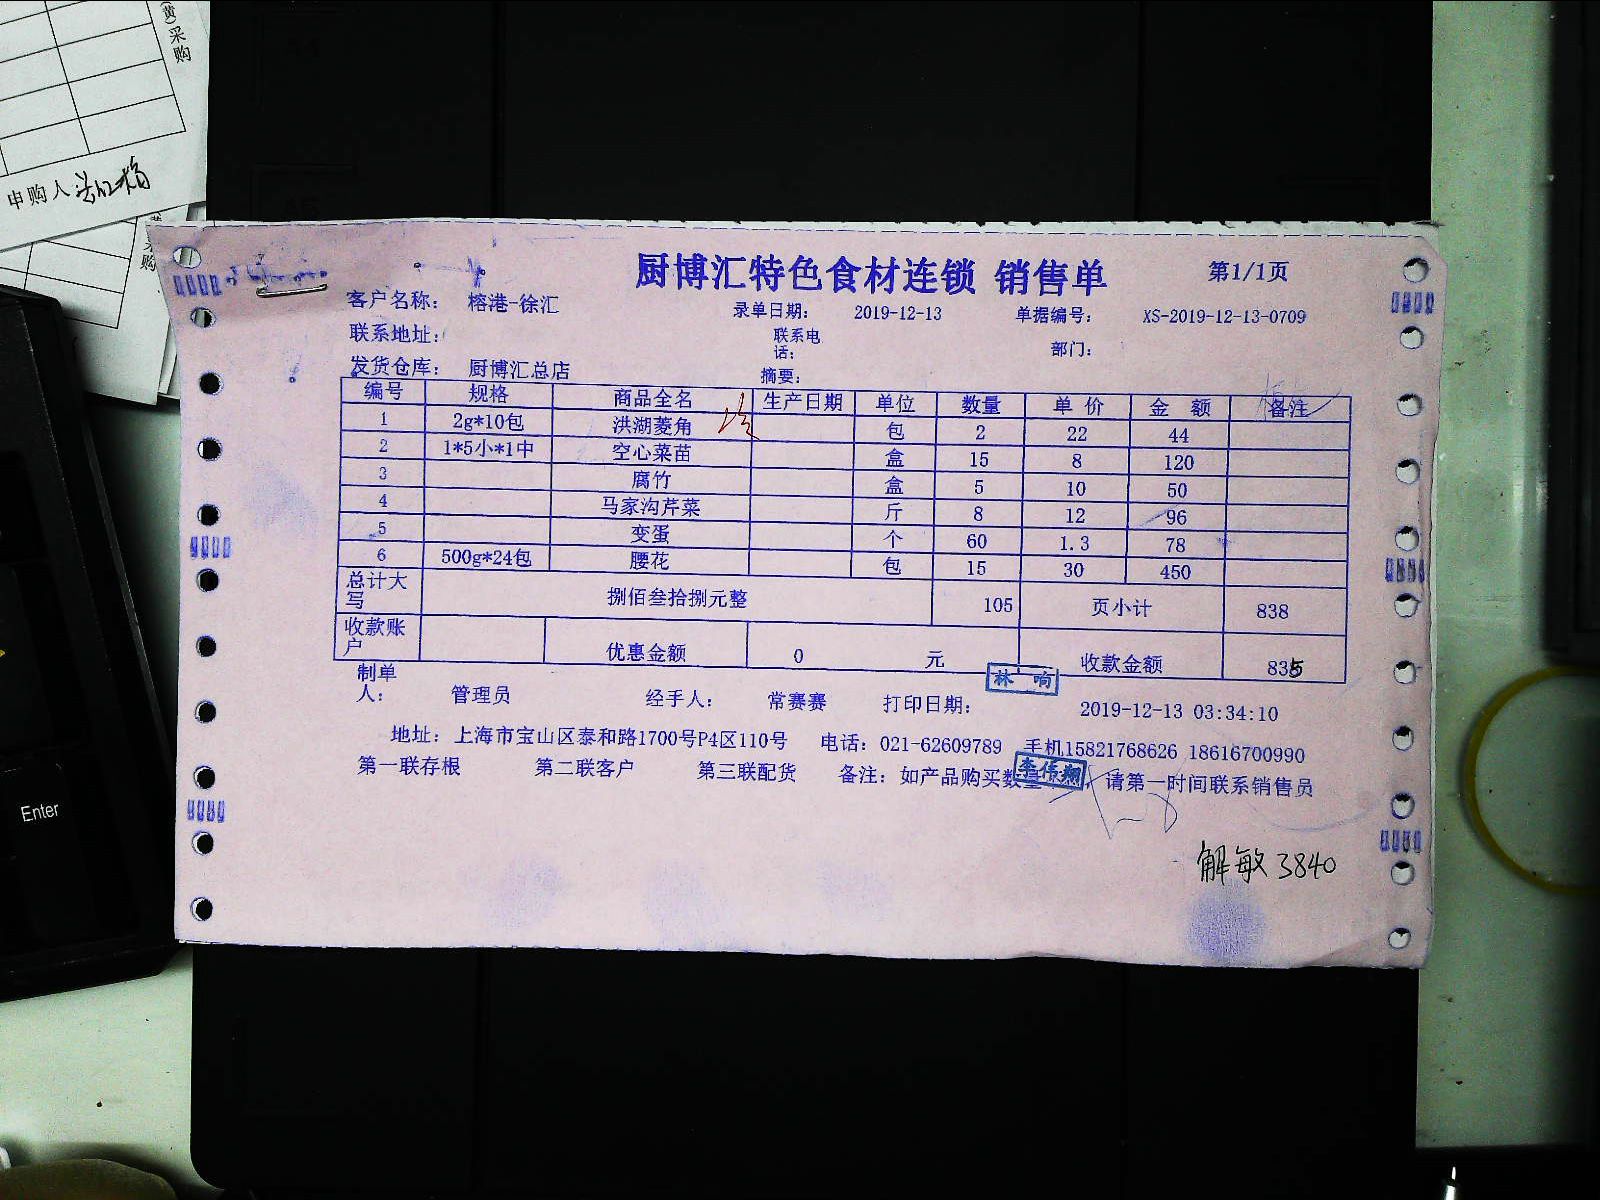 (黄)采购
申购人
购
Enter
厨博汇特色食材连锁 销售单 第1/1页
客户名称： 榕港-徐汇 录单日期： 2019-12-13 单据编号： XS-2019-12-13-0709
联系地址： 联系电话： 部门：
发货仓库： 厨博汇总店 摘要：
编号 规格 商品全名 生产日期 单位 数量 单 价 金 额 备注
1 2g*10包 洪湖菱角 包 2 22 44
2 1*5小*1中 空心菜苗 盒 15 8 120
3 腐竹 盒 5 10 50
4 马家沟芹菜 斤 8 12 96
5 变蛋 个 60 1.3 78
6 500g*24包 腰花 包 15 30 450
总计大写 捌佰叁拾捌元整 105 页小计 838
收款账户 优惠金额 0 元 收款金额 835
林 响
制单人： 管理员 经手人： 常赛赛 打印日期： 2019-12-13 03:34:10
地址：上海市宝山区泰和路1700号P4区110号 电话：021-62609789 手机15821768626 18616700990
李伟翔
第一联存根 第二联客户 第三联配货 备注：如产品购买数量 ，请第一时间联系销售员
解敏 3840